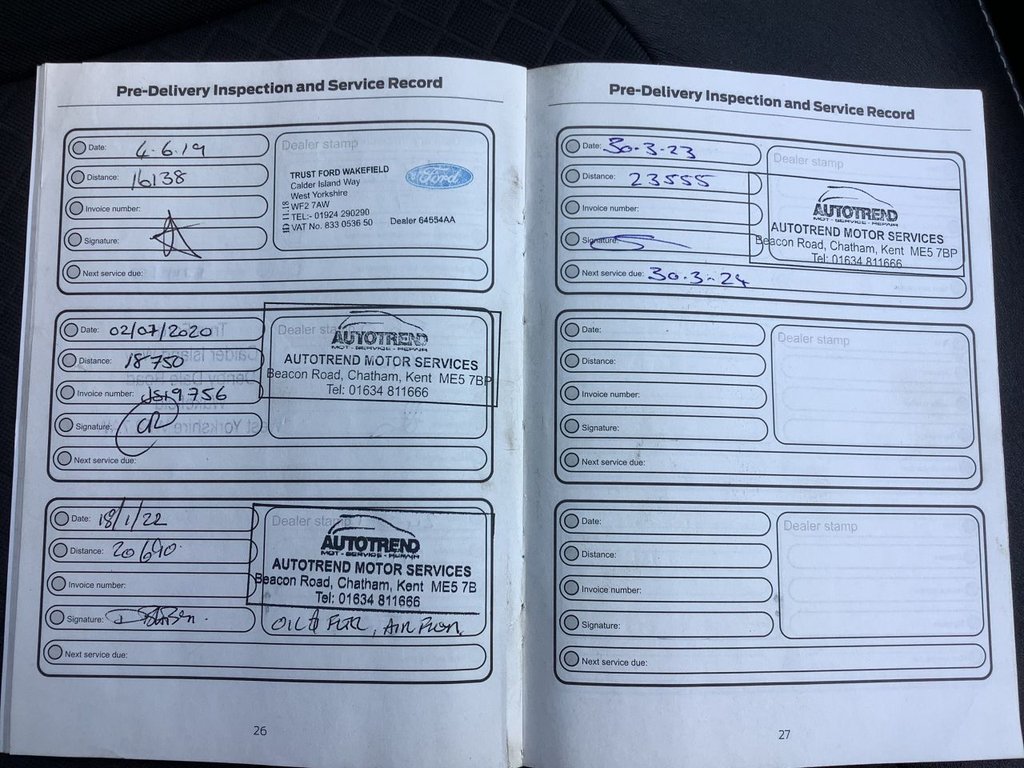 Pre-Delivery Inspection and Service Record
Date: 4.6.19
Distance: 16138
Invoice number:
Signature:
Next service due:
Dealer stamp
TRUST FORD WAKEFIELD
Calder Island Way
West Yorkshire
WF2 7AW
TEL:- 01924 290290
VAT No. 833 0536 50
Ford
Dealer 64554AA
Date: 02/07/2020
Distance: 18750
Invoice number: 9756
Signature:
Next service due:
Dealer stamp
AUTOTREND
MOT - SERVICE - REPAIR
AUTOTREND MOTOR SERVICES
Beacon Road, Chatham, Kent ME5 7BP
Tel: 01634 811666
Date: 18/1/22
Distance: 20640
Invoice number:
Signature:
Next service due:
Dealer stamp
AUTOTREND
MOT - SERVICE - REPAIR
AUTOTREND MOTOR SERVICES
Beacon Road, Chatham, Kent ME5 7B
Tel: 01634 811666
OIL
26
Pre-Delivery Inspection and Service Record
Date: 30.3.23
Distance: 23555
Invoice number:
Signature:
Next service due: 30.3.24
Dealer stamp
AUTOTREND
MOT - SERVICE - REPAIR
AUTOTREND MOTOR SERVICES
Beacon Road, Chatham, Kent ME5 7BP
Tel: 01634 811666
Date:
Distance:
Invoice number:
Signature:
Next service due:
Dealer stamp
Date:
Distance:
Invoice number:
Signature:
Next service due:
Dealer stamp
27